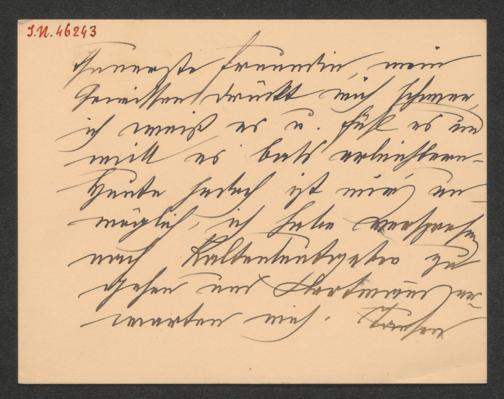 J.N. 46243
Theuerste Freundin, mein
Gewissen drückt mich schwer,
ich weiß es u. fühl es und
will es bald erleichtern.
Heute jedoch ist mir un-
möglich, ich habe versprochen
nach
gehen und Hartmanns er-
warten mich. Tausend